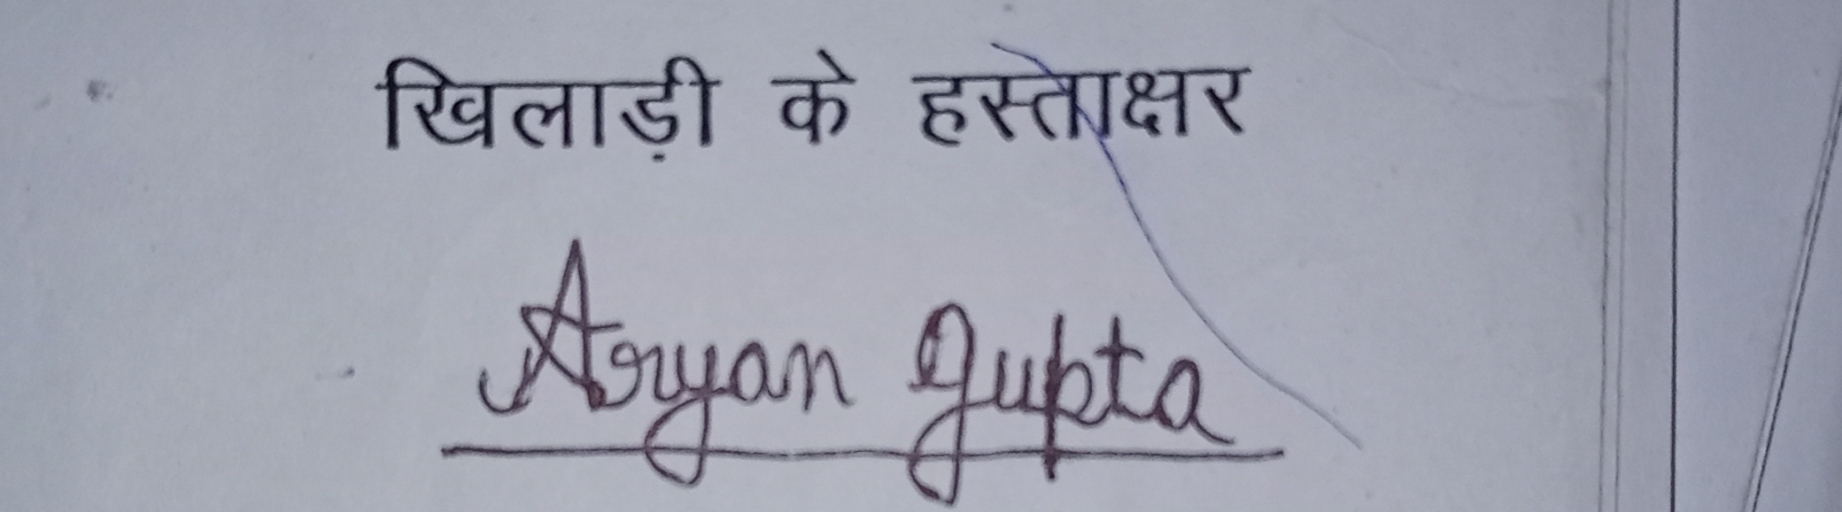 खिलाड़ी के हस्ताक्षर
Aryan Gupta